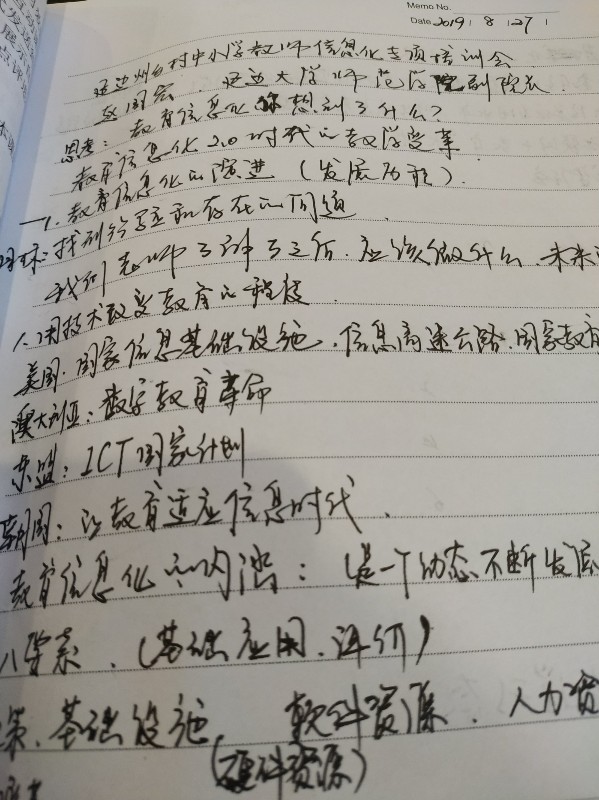 Memo No.
Date 2019 / 8 / 27 /
延边州农村中小学教师信息化专项培训会
赵国宏 . 延边大学师范学院副院长
思考: 教育信息化你想到了什么?
教育信息化2.0时代的教学变革
教育信息化的演进 (发展历程) .
一、教育信息化的
环: 找到行
我们老师了解了之后, 应该做什么. 未来
用技术改变教育的
美国: 国家信息基础设施, 信息高速公路. 国家教育
澳大利亚: 数字教育革命
东盟: ICT国家计划
韩国: 以教育适应信息时代.
教育信息化的内涵: (是一个动态不断发展
八要素. (基础应用. 评价)
策. 基础设施 软件资源. 人力资
(硬件资源)